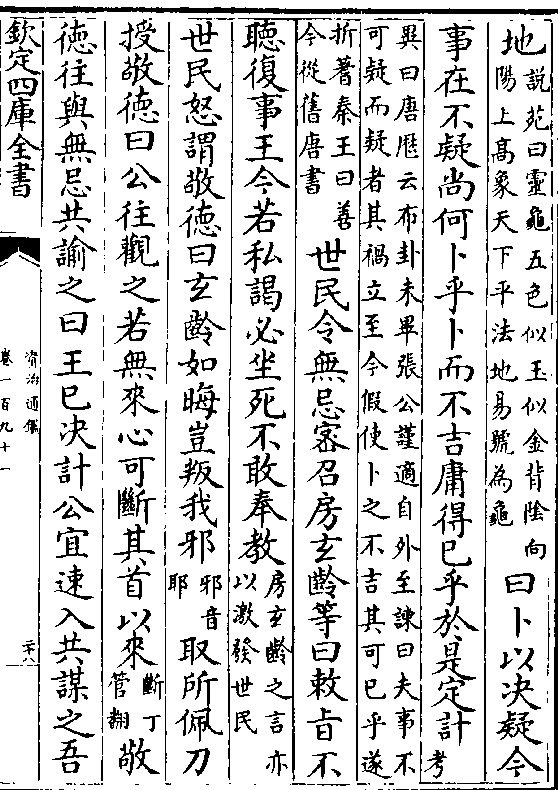 地
說苑曰靈龜五色似玉似金背陰向
陽上髙象天下平法地易號為龜
曰卜以決疑今
事在不疑尚何卜乎卜而不吉庸得已乎於是定計
考
異曰唐厯云布卦未畢張公謹適自外至諫曰夫事不
可疑而疑者其禍立至今假使卜之不吉其可已乎遂
折蓍秦王曰善
今從舊唐書
世民令無忌宻召房玄齡等曰敕旨不
聽復事王今若私謁必坐死不敢奉教
房玄齡之言亦
以激發世民
世民怒謂敬徳曰玄齡如晦豈叛我邪
邪音
耶
取所佩刀
授敬徳曰公往觀之若無來心可斷其首以來
斷丁
管翻
敬
徳往與無忌共諭之曰王已決計公宜速入共謀之吾
欽定四庫全書
資治通鑑
卷一百九十一
二十八